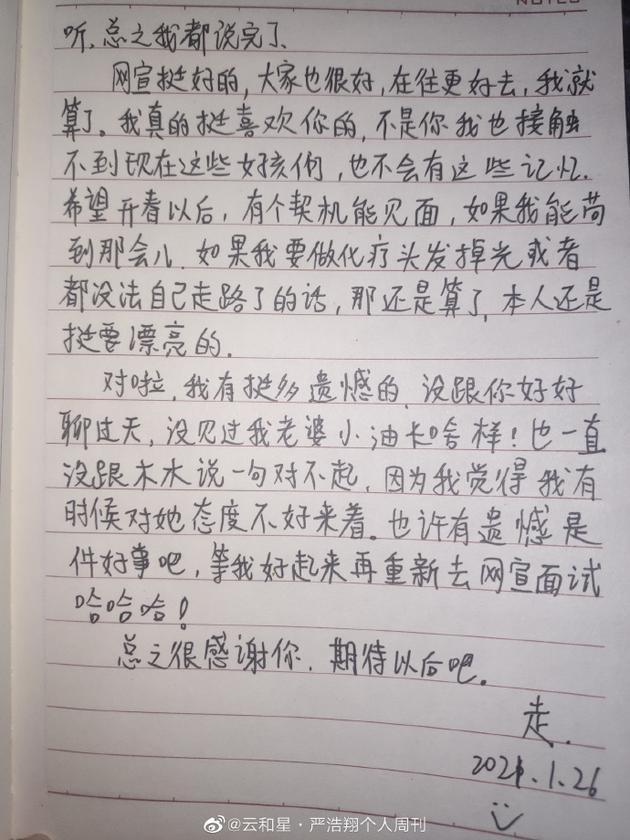 NOTES
听、总之我都说完了、
网宣挺好的，大家也很好，在往更好去，我就
算了。我真的挺喜欢你的，不是你我也接触
不到现在这些好孩们，也不会有这些记忆.
希望开春以后，有个契机能见面，如果我能苟
到那会儿.如果我要做化疗头发掉光或者
都没法自己走路了的话，那还是算了，本人还是
挺要漂亮的.
对啦，我有挺多遗憾的.没跟你好好
聊过天，没见过我老婆小油卡啥样！也一直
没跟木木说一句对不起，因为我觉得我有
时候对她态度不好来着。也许有遗憾是
件好事吧，等我好起来再重新去网宣面试
哈哈哈！
总之很感谢你.期待以后吧。
走.
2021.1.26
@云和星·严浩翔个人周刊